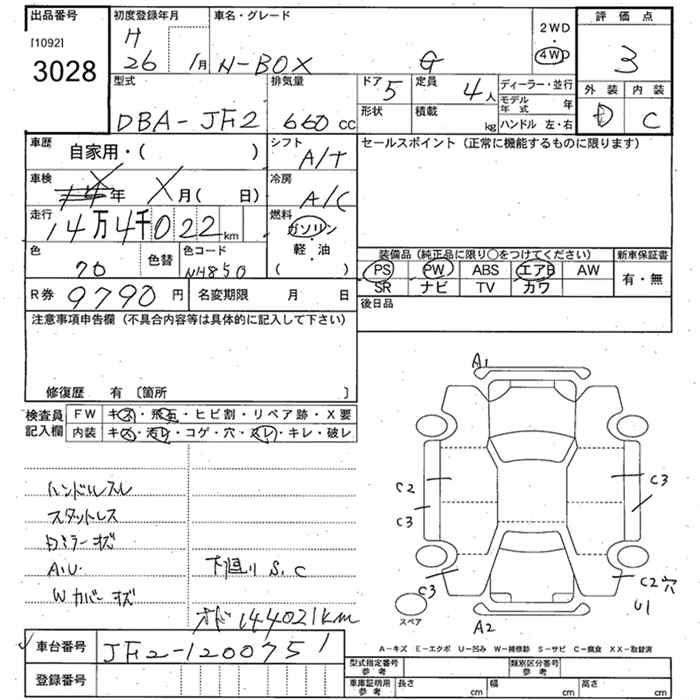 出品番号
[1092]
3028
初度登録年月
H
26 1月
車名・グレード
N-BOX G
2WD
・
4WD
評価点
3
外装 内装
D C
型式
DBA-JF2
排気量
660 cc
ドア
5
定員
4人
形状
積載
kg
ディーラー・並行
モデル年式 年
ハンドル 左・右
車歴
自家用・( )
シフト
A/T
セールスポイント (正常に機能するものに限ります)
車検
年 X月( 日)
冷房
A/C
走行
14万4千022km
燃料
ガソリン
軽・油
( )
色
70
色替
色コード
NH850
装備品 (純正品に限り○をつけてください)
新車保証書
PS PW ABS エアB AW
SR ナビ TV カワ
有・無
R券 9790円
名変期限 月 日
後日品
注意事項申告欄 (不具合内容等は具体的に記入して下さい)
修復歴 有 〔箇所 〕
検査員
記入欄
FW キズ・飛石・ヒビ割・リペア跡・X要
内装 キズ・汚レ・コゲ・穴・スレ・キレ・破レ
ハンドルスレ
スタットレス
ミラーキズ
A.U.
Wカバーキズ
下廻り S,C
オド144021km
A1
C2
C3
C3
C3
C2穴
U1
A2
スペア
車台番号
JF2-1200751
登録番号
A-キズ E-エクボ U-凹み W-補修跡 S-サビ C-腐食 XX-取替済
型式指定番号
参考
類別区分番号
参考
車庫証明用
参考
長さ cm
幅 cm
高さ cm